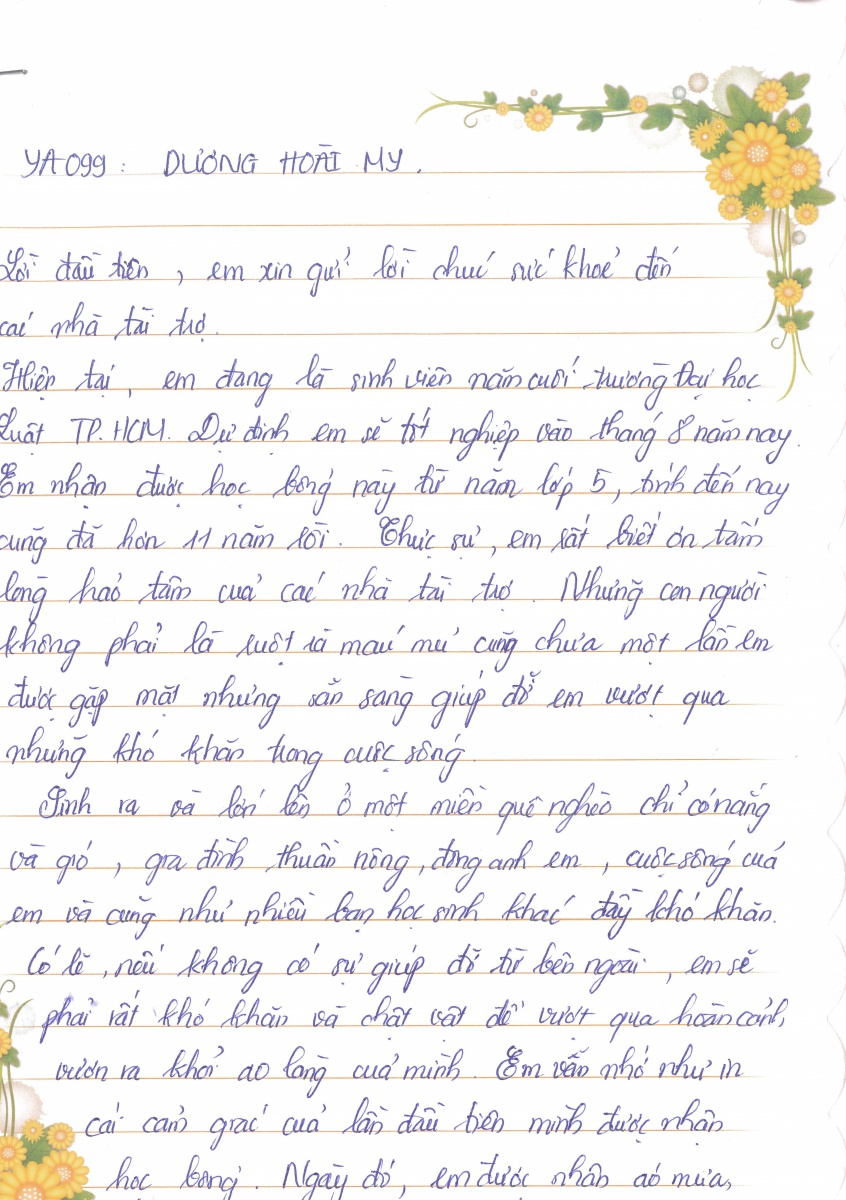 YA099 : DƯƠNG HOÀI MY.
Lời đầu tiên, em xin gửi lời chúc sức khoẻ đến
các nhà tài trợ.
Hiện tại, em đang là sinh viên năm cuối trường Đại học
Luật TP.HCM. Dự định em sẽ tốt nghiệp vào tháng 8 năm nay.
Em nhận được học bổng này từ năm lớp 5, tính đến nay
cũng đã hơn 11 năm rồi. Thực sự, em rất biết ơn tấm
lòng hảo tâm của các nhà tài trợ. Những con người
không phải là ruột rà máu mủ cũng chưa một lần em
được gặp mặt nhưng sẵn sàng giúp đỡ em vượt qua
những khó khăn trong cuộc sống.
Sinh ra và lớn lên ở một miền quê nghèo chỉ có nắng
và gió, gia đình thuần nông, đông anh em, cuộc sống của
em và cũng như nhiều bạn học sinh khác đầy khó khăn.
Có lẽ, nếu không có sự giúp đỡ từ bên ngoài, em sẽ
phải rất khó khăn và chật vật để vượt qua hoàn cảnh,
vươn ra khỏi ao làng của mình. Em vẫn nhớ như in
cái cảm giác của lần đầu tiên mình được nhận
học bổng. Ngày đó, em được nhận áo mưa,